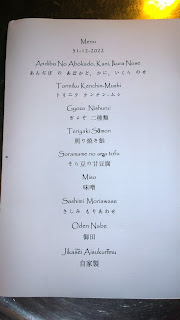 Menu
31-12-2022
Andibo No Abokado, Kani, Ikura Nose
あんぢぼ の あぼかど, かに, いくら のせ
Toriniku Kenchin-Mushi
トリニク ケンチン-ムシ
Gyoza Nishurui
ぎょざ 二種類
Teriyaki Salmon
照り焼き鮭
Soramame no ama tofu
そら豆の甘豆腐
Miso
味噌
Sashimi Moriawase
さしみ もりあわせ
Oden Nabe
御田
Jikasei Aisukurimu
自家製